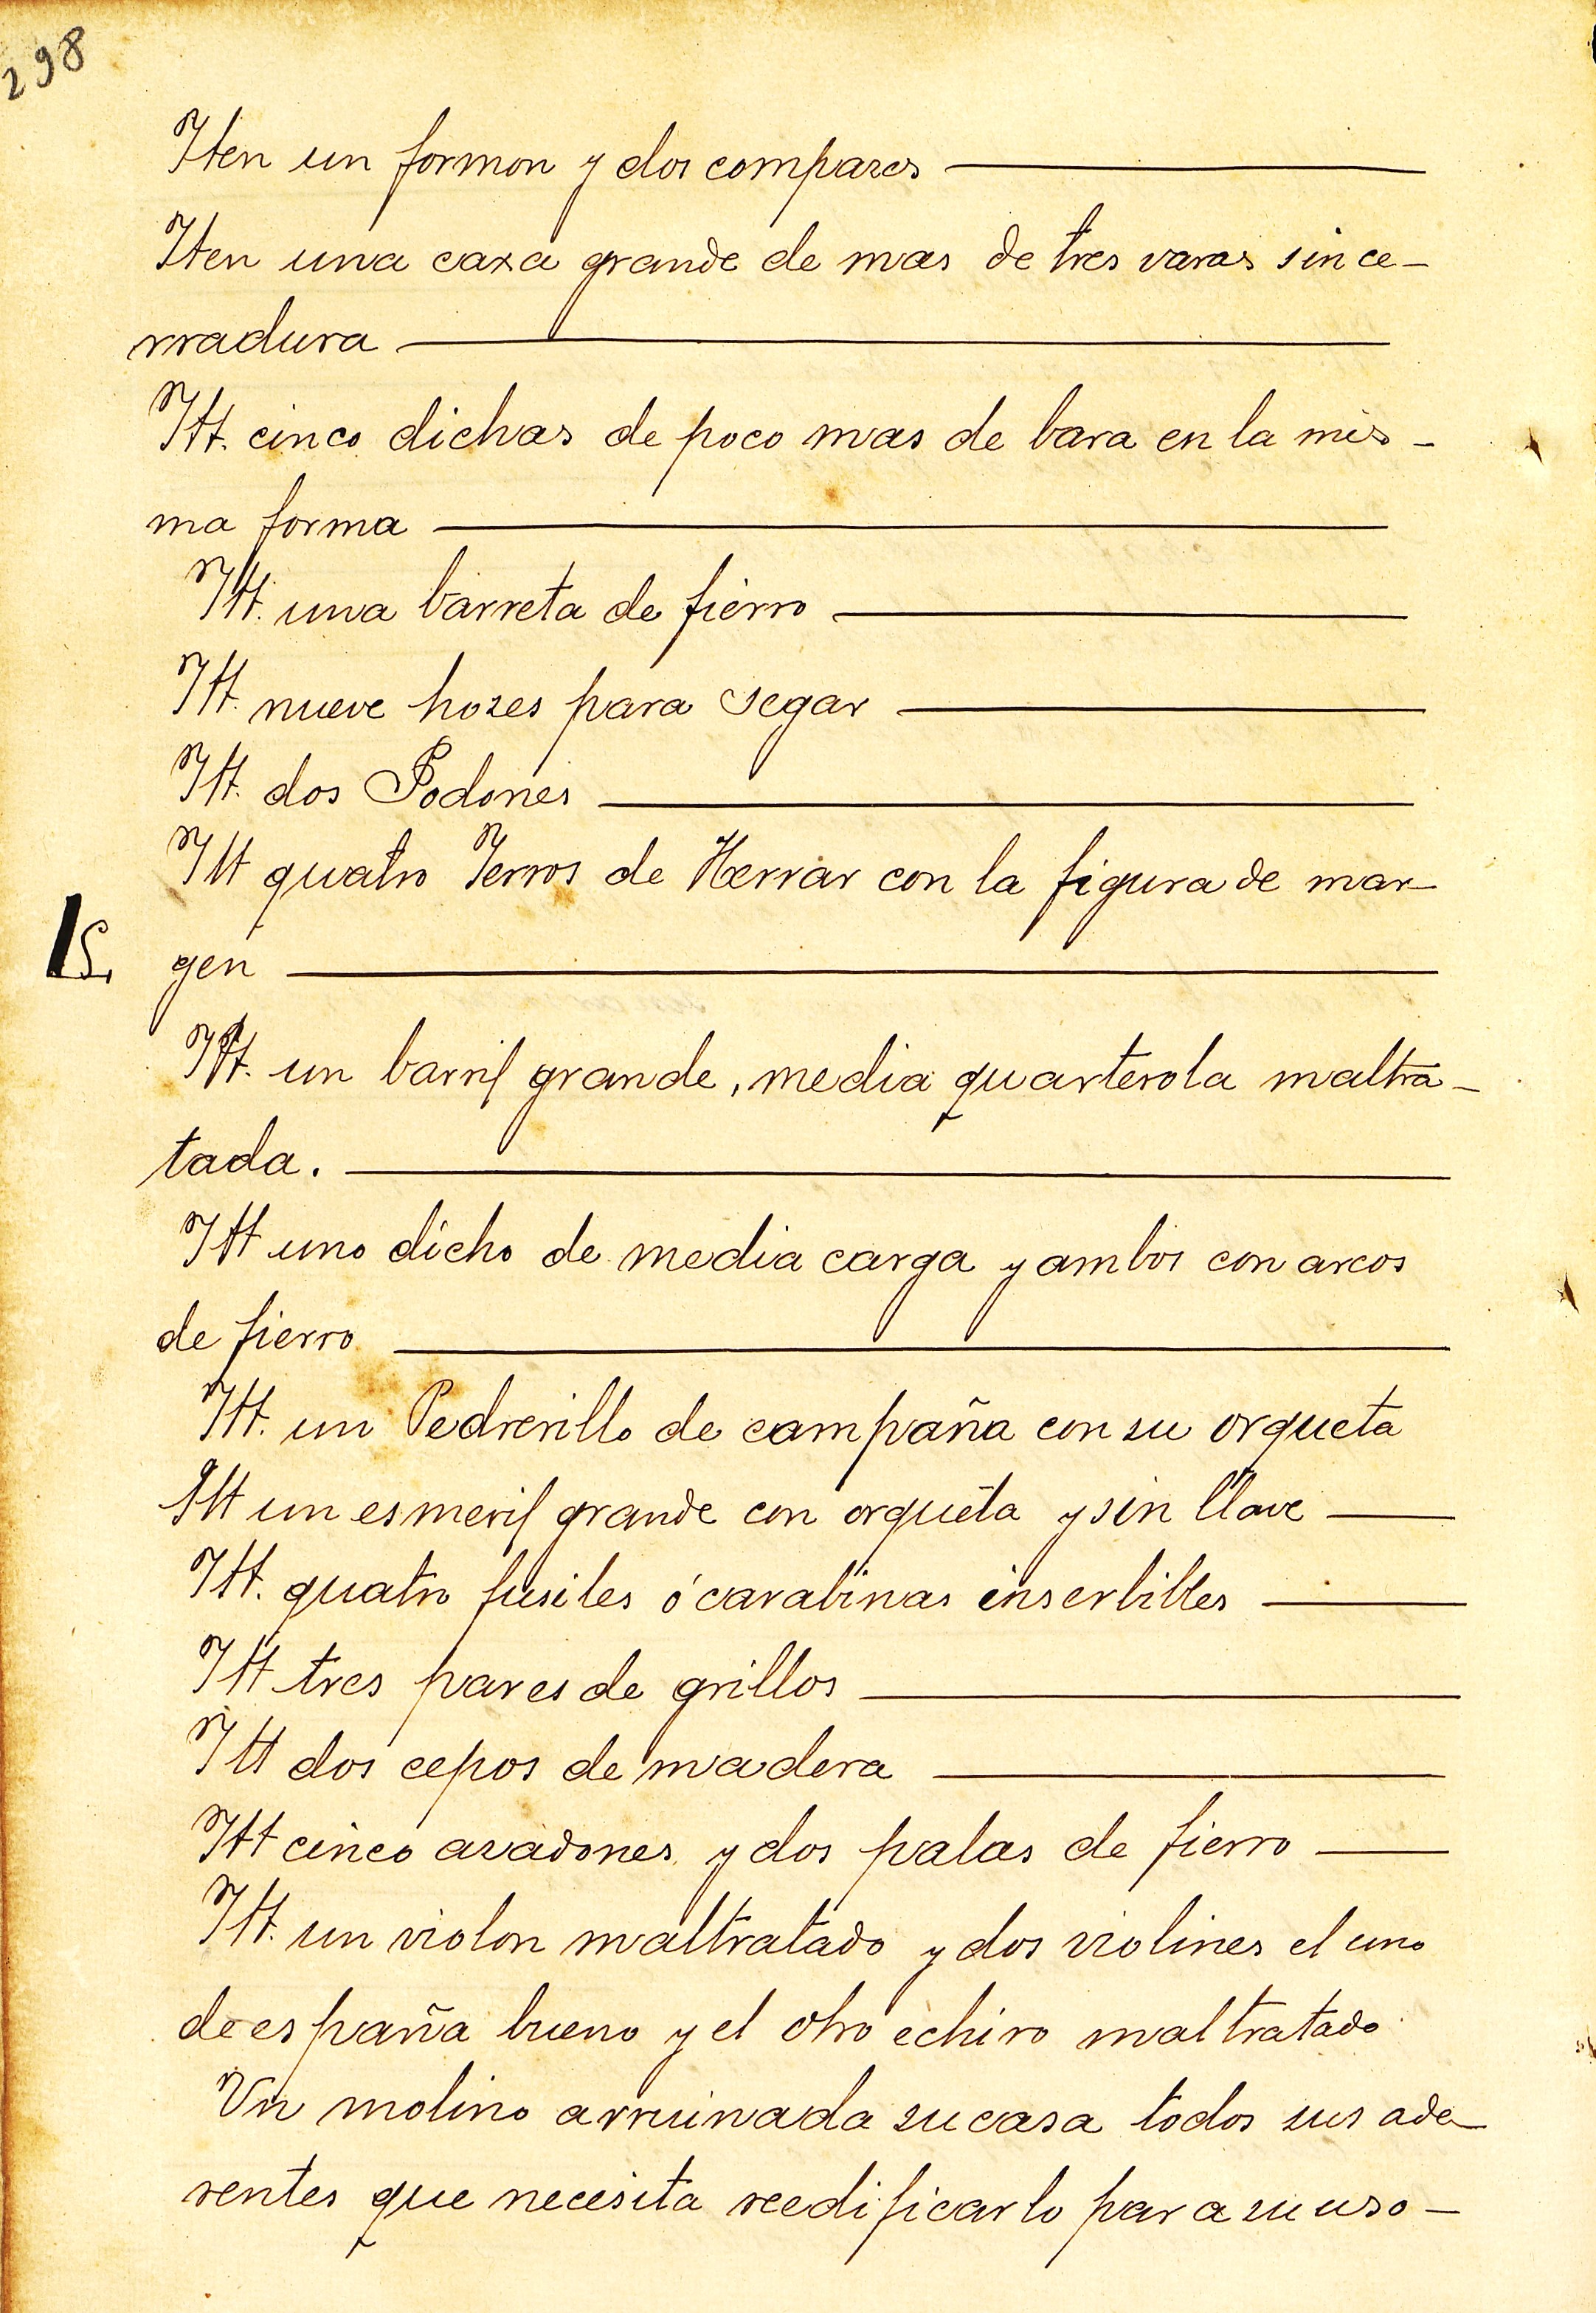 298
Iten un formon y dos compases
Iten una caxa grande de mas de tres varas sin ce-
rradura
Itt. cinco dichas de poco mas de bara en la mis-
ma forma
Itt. una barreta de fierro
Itt. nueve hozes para segar
Itt. dos Podones
Itt quatro Ierros de Herrar con la figura de mar-
gen
Itt. un barril grande, media quarterola maltra-
tada.
Itt uno dicho de media carga y ambos con arcos
de fierro
Itt. un Pedrerillo de campaña con su orqueta
Itt un esmeril grande con orqueta y sin llave
Itt. quatro fusiles ó carabinas inserbibles
Itt tres pares de grillos
Itt dos cepos de madera
Itt cinco azadones y dos palas de fierro
Itt. un violon maltratado y dos violines el uno
de españa bueno y el otro echiro maltratado
Vn molino arruinada su casa todos sus ade-
rentes que necesita reedificarlo para su uso-